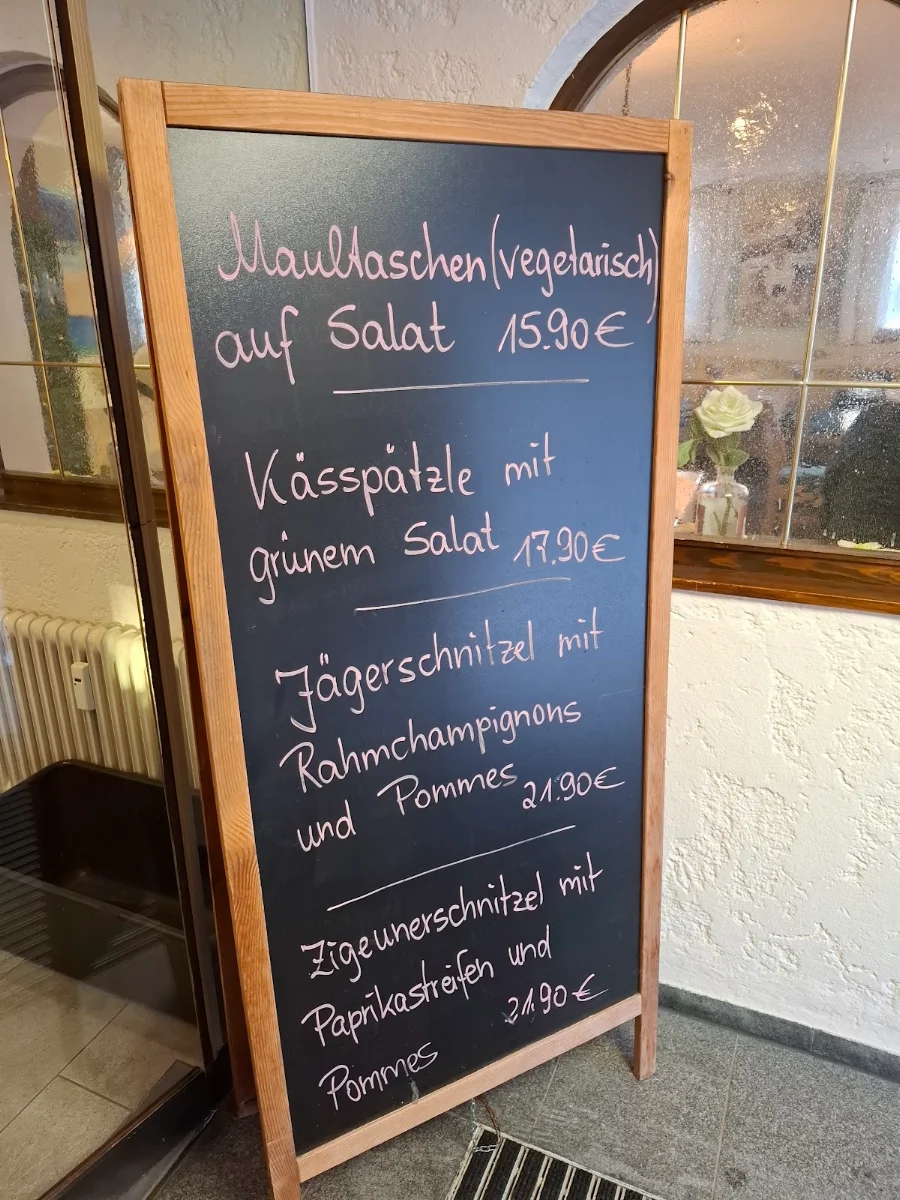 Maultaschen (vegetarisch)
auf Salat 15.90€
Kässpätzle mit
grünem Salat 17.90€
Jägerschnitzel mit
Rahmchampignons
und Pommes 21.90€
Zigeunerschnitzel mit
Paprikastreifen und
Pommes 21.90€